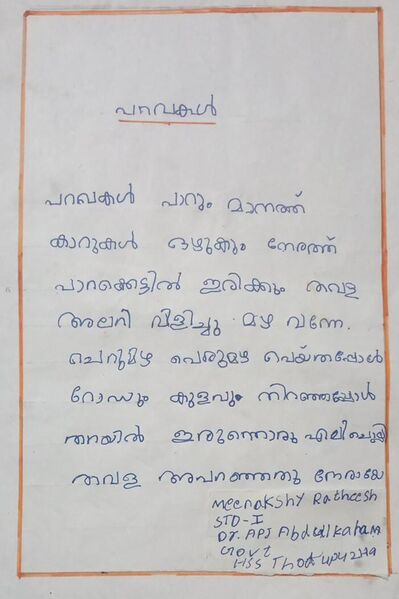 പറവകൾ
പറവകൾ പാറും മാനത്ത്
കാറുകൾ ഒഴുകും നേരത്ത്
പാറക്കെട്ടിൽ ഇരിക്കും തവള
അലറി വിളിച്ചു മഴ വന്നേ.
ചെറുമഴ പെരുമഴ പെയ്തപ്പോൾ
റോഡും കുളവും നിറഞ്ഞപ്പോൾ
തറയിൽ ഇരുന്നൊരു എലി ചൊല്ലി
തവള അപറഞ്ഞതു നേരായേ
Meenakshy Ratheesh
STD-I
Dr. APJ Abdulkalam
Govt
HSS Thodupuzha